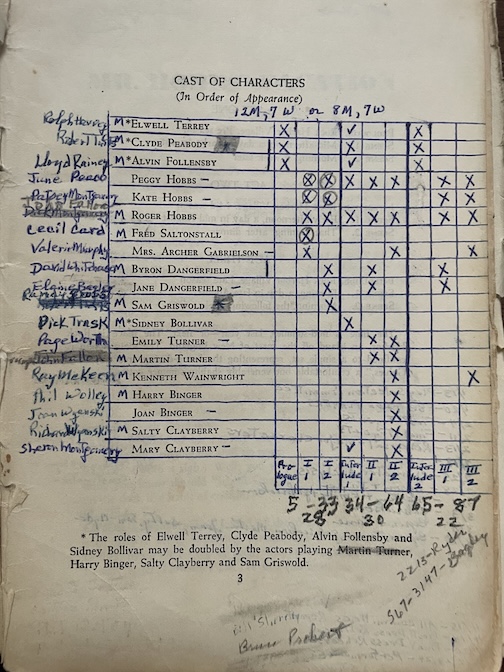 CAST OF CHARACTERS
(In Order of Appearance)
12M, 7 W or 8 M, 7W
Ralph Harvey M *ELWELL TERREY X ✓ X
M *CLYDE PEABODY X X X
Lloyd Rainey M *ALVIN FOLLENSBY X ✓ X
June PEGGY HOBBS – X X X X X X X
Patsey Montgomery KATE HOBBS – X X X X
M ROGER HOBBS X X X X X X X
Cecil Card M FRED SALTONSTALL X
Valerie Murphy MRS. ARCHER GABRIELSON – X X X
David Whitehead M BYRON DANGERFIELD X X X
Elaine JANE DANGERFIELD – X X X
M SAM GRISWOLD X
Dick Trask M *SIDNEY BOLLIVAR X
Page Worth EMILY TURNER – X X
John Fallen M MARTIN TURNER X X
Ray McKeen M KENNETH WAINWRIGHT X X
Phil Wolley M HARRY BINGER X
Joan JOAN BINGER – X
Richard M SALTY CLAYBERRY X
Sharon Montgomery MARY CLAYBERRY – ✓ X
Pro logue I 1 I 2 Inter lude 1 II 1 II 2 Inter lude 2 III 1 III 2
5 - 33 34 - 64 65 - 87
28 30 22
* The roles of Elwell Terrey, Clyde Peabody, Alvin Follensby and
Sidney Bollivar may be doubled by the actors playing Martin Turner,
Harry Binger, Salty Clayberry and Sam Griswold.
3
2213-Ryder
567-3147-
Bruce